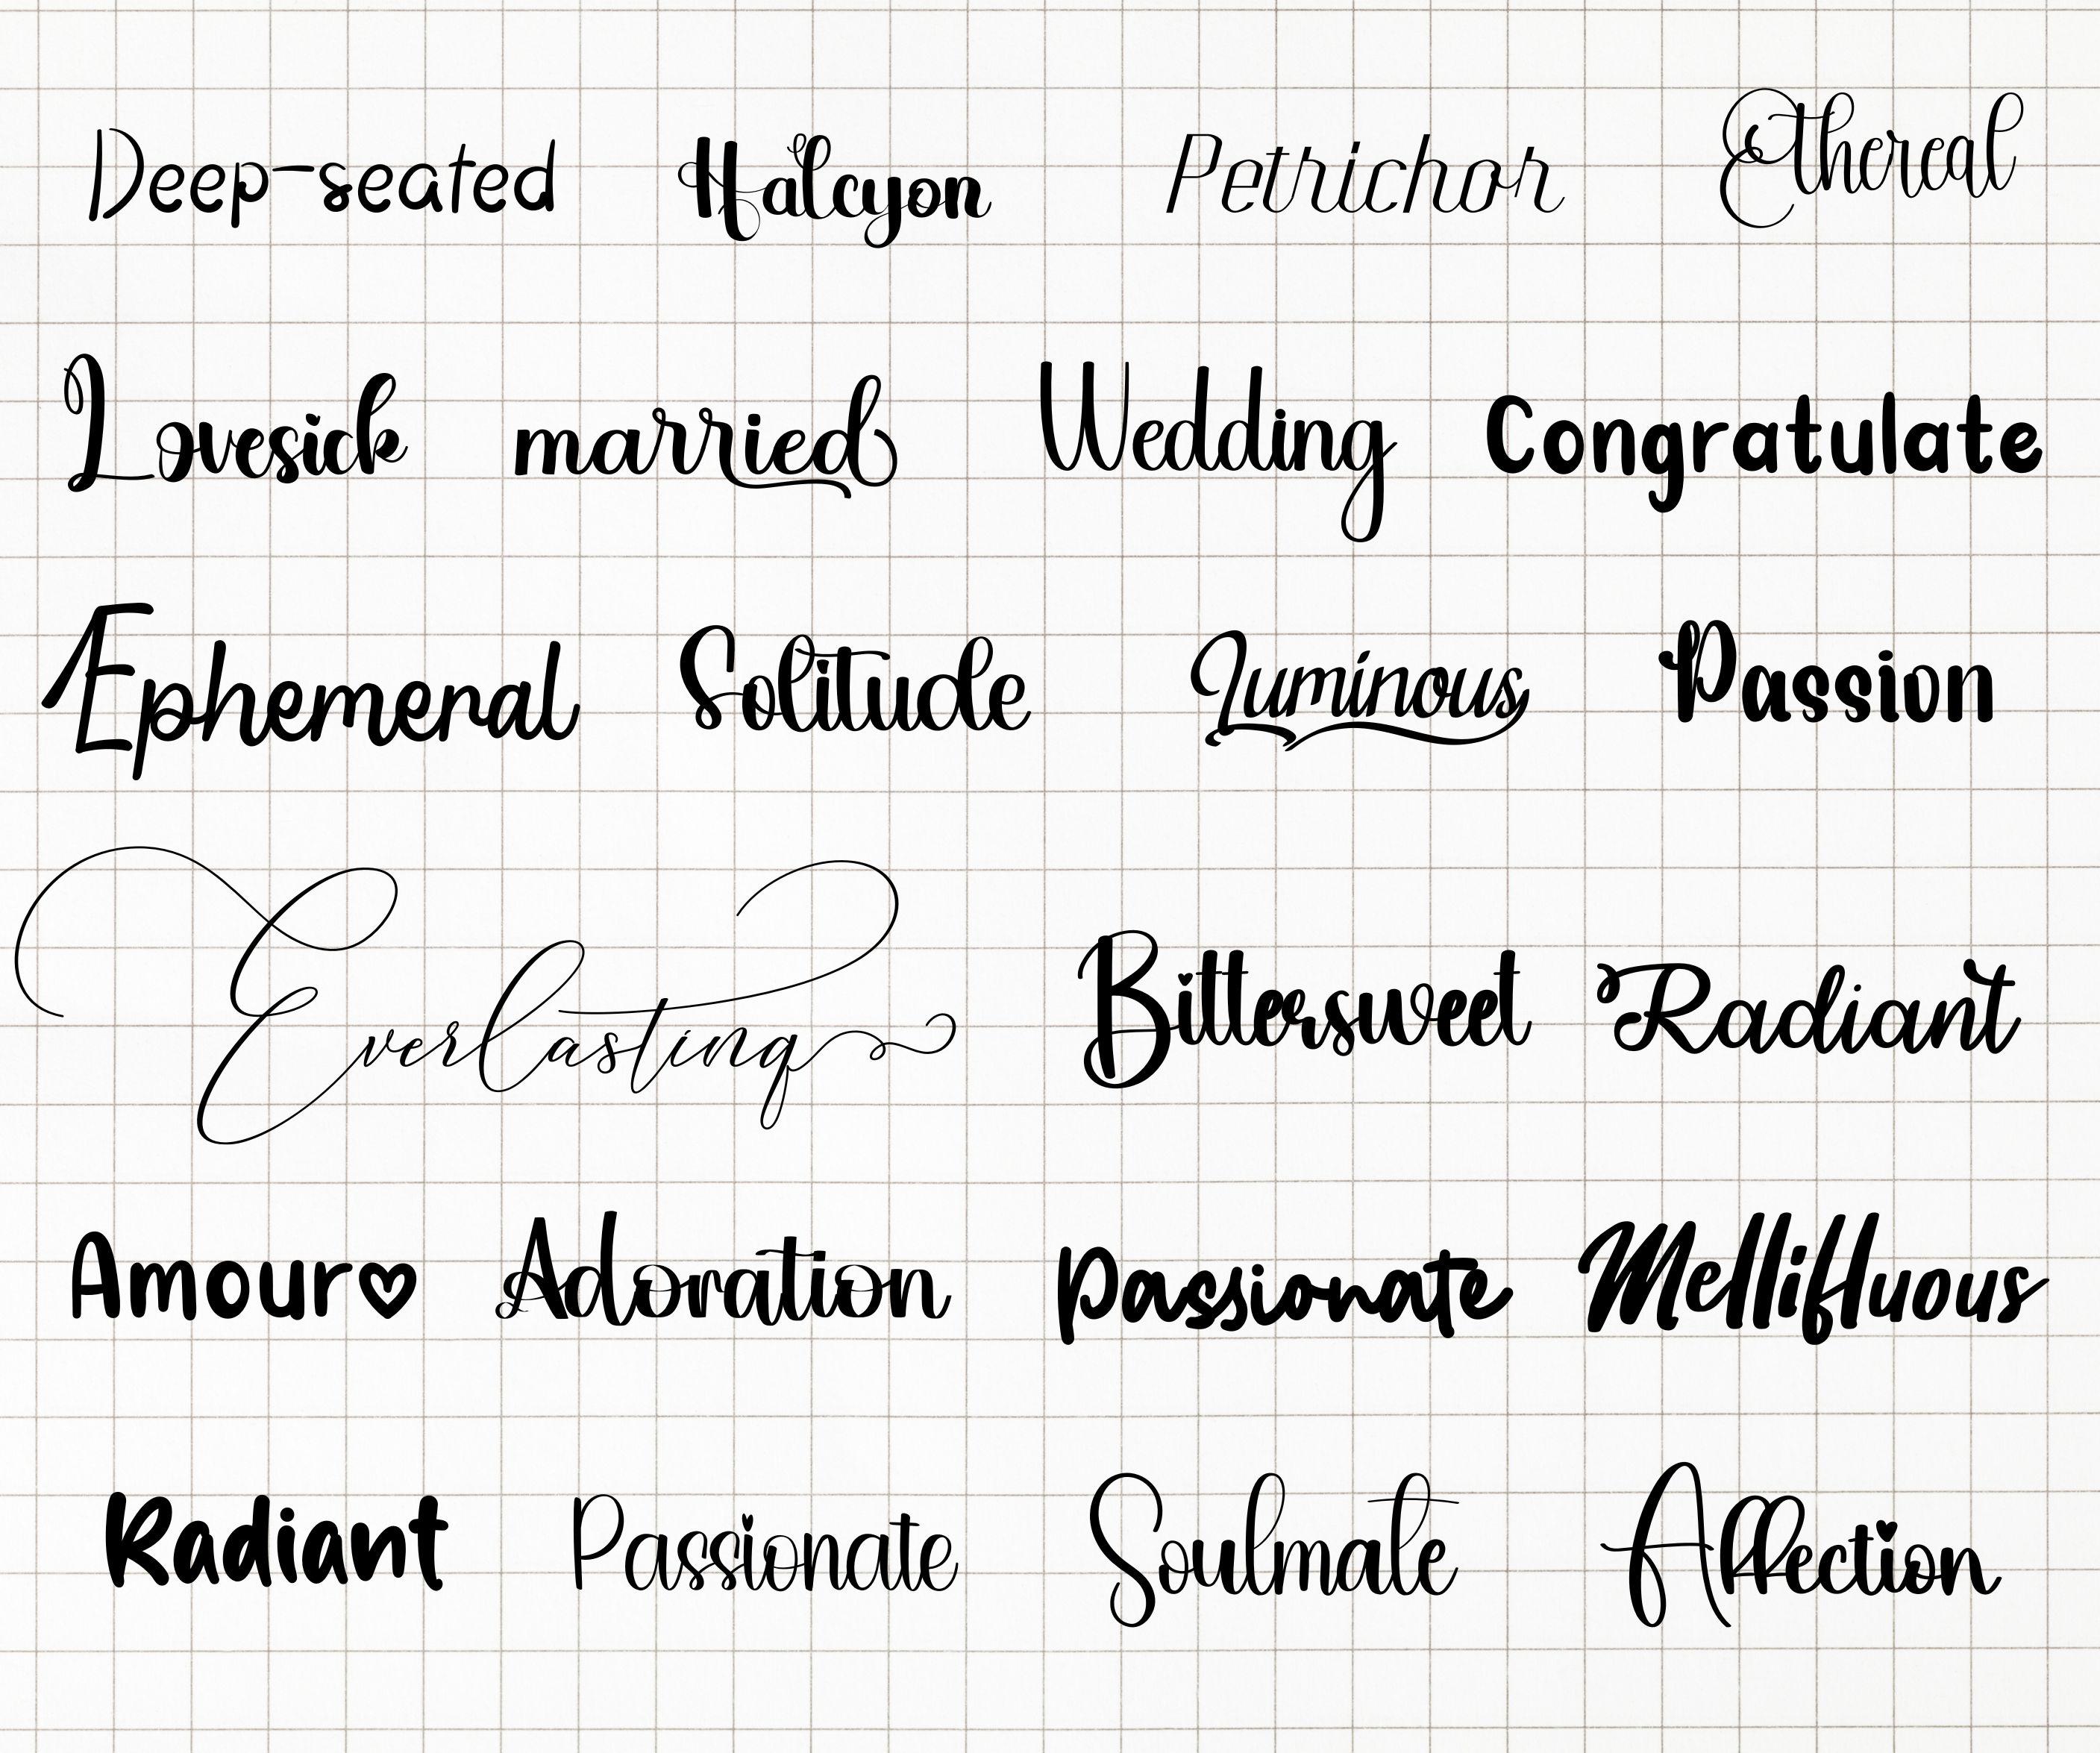 Deep-seated Halcyon Petrichor Ethereal
Lovesick married Wedding Congratulate
Ephemeral Solitude Luminous Passion
Everlasting Bittersweet Radiant
Amour♡ Adoration Passionate Mellifluous
Radiant Passionate Soulmate Affection